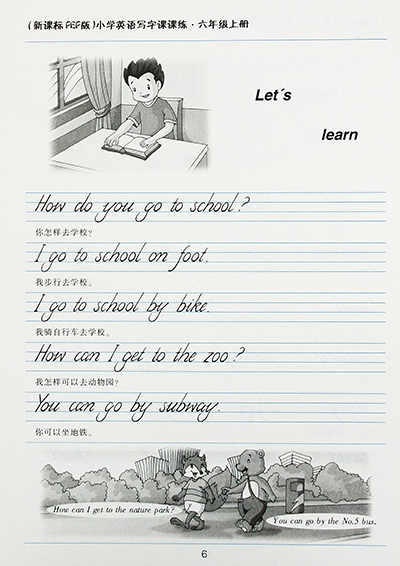 （新课标PEP版）小学英语写字课课练·六年级上册
Let's
learn
How do you go to school?
你怎样去学校?
I go to school on foot.
我步行去学校。
I go to school by bike.
我骑自行车去学校。
How can I get to the zoo?
我怎样可以去动物园?
You can go by subway.
你可以坐地铁。
How can I get to the nature park?
You can go by the No.5 bus.
6